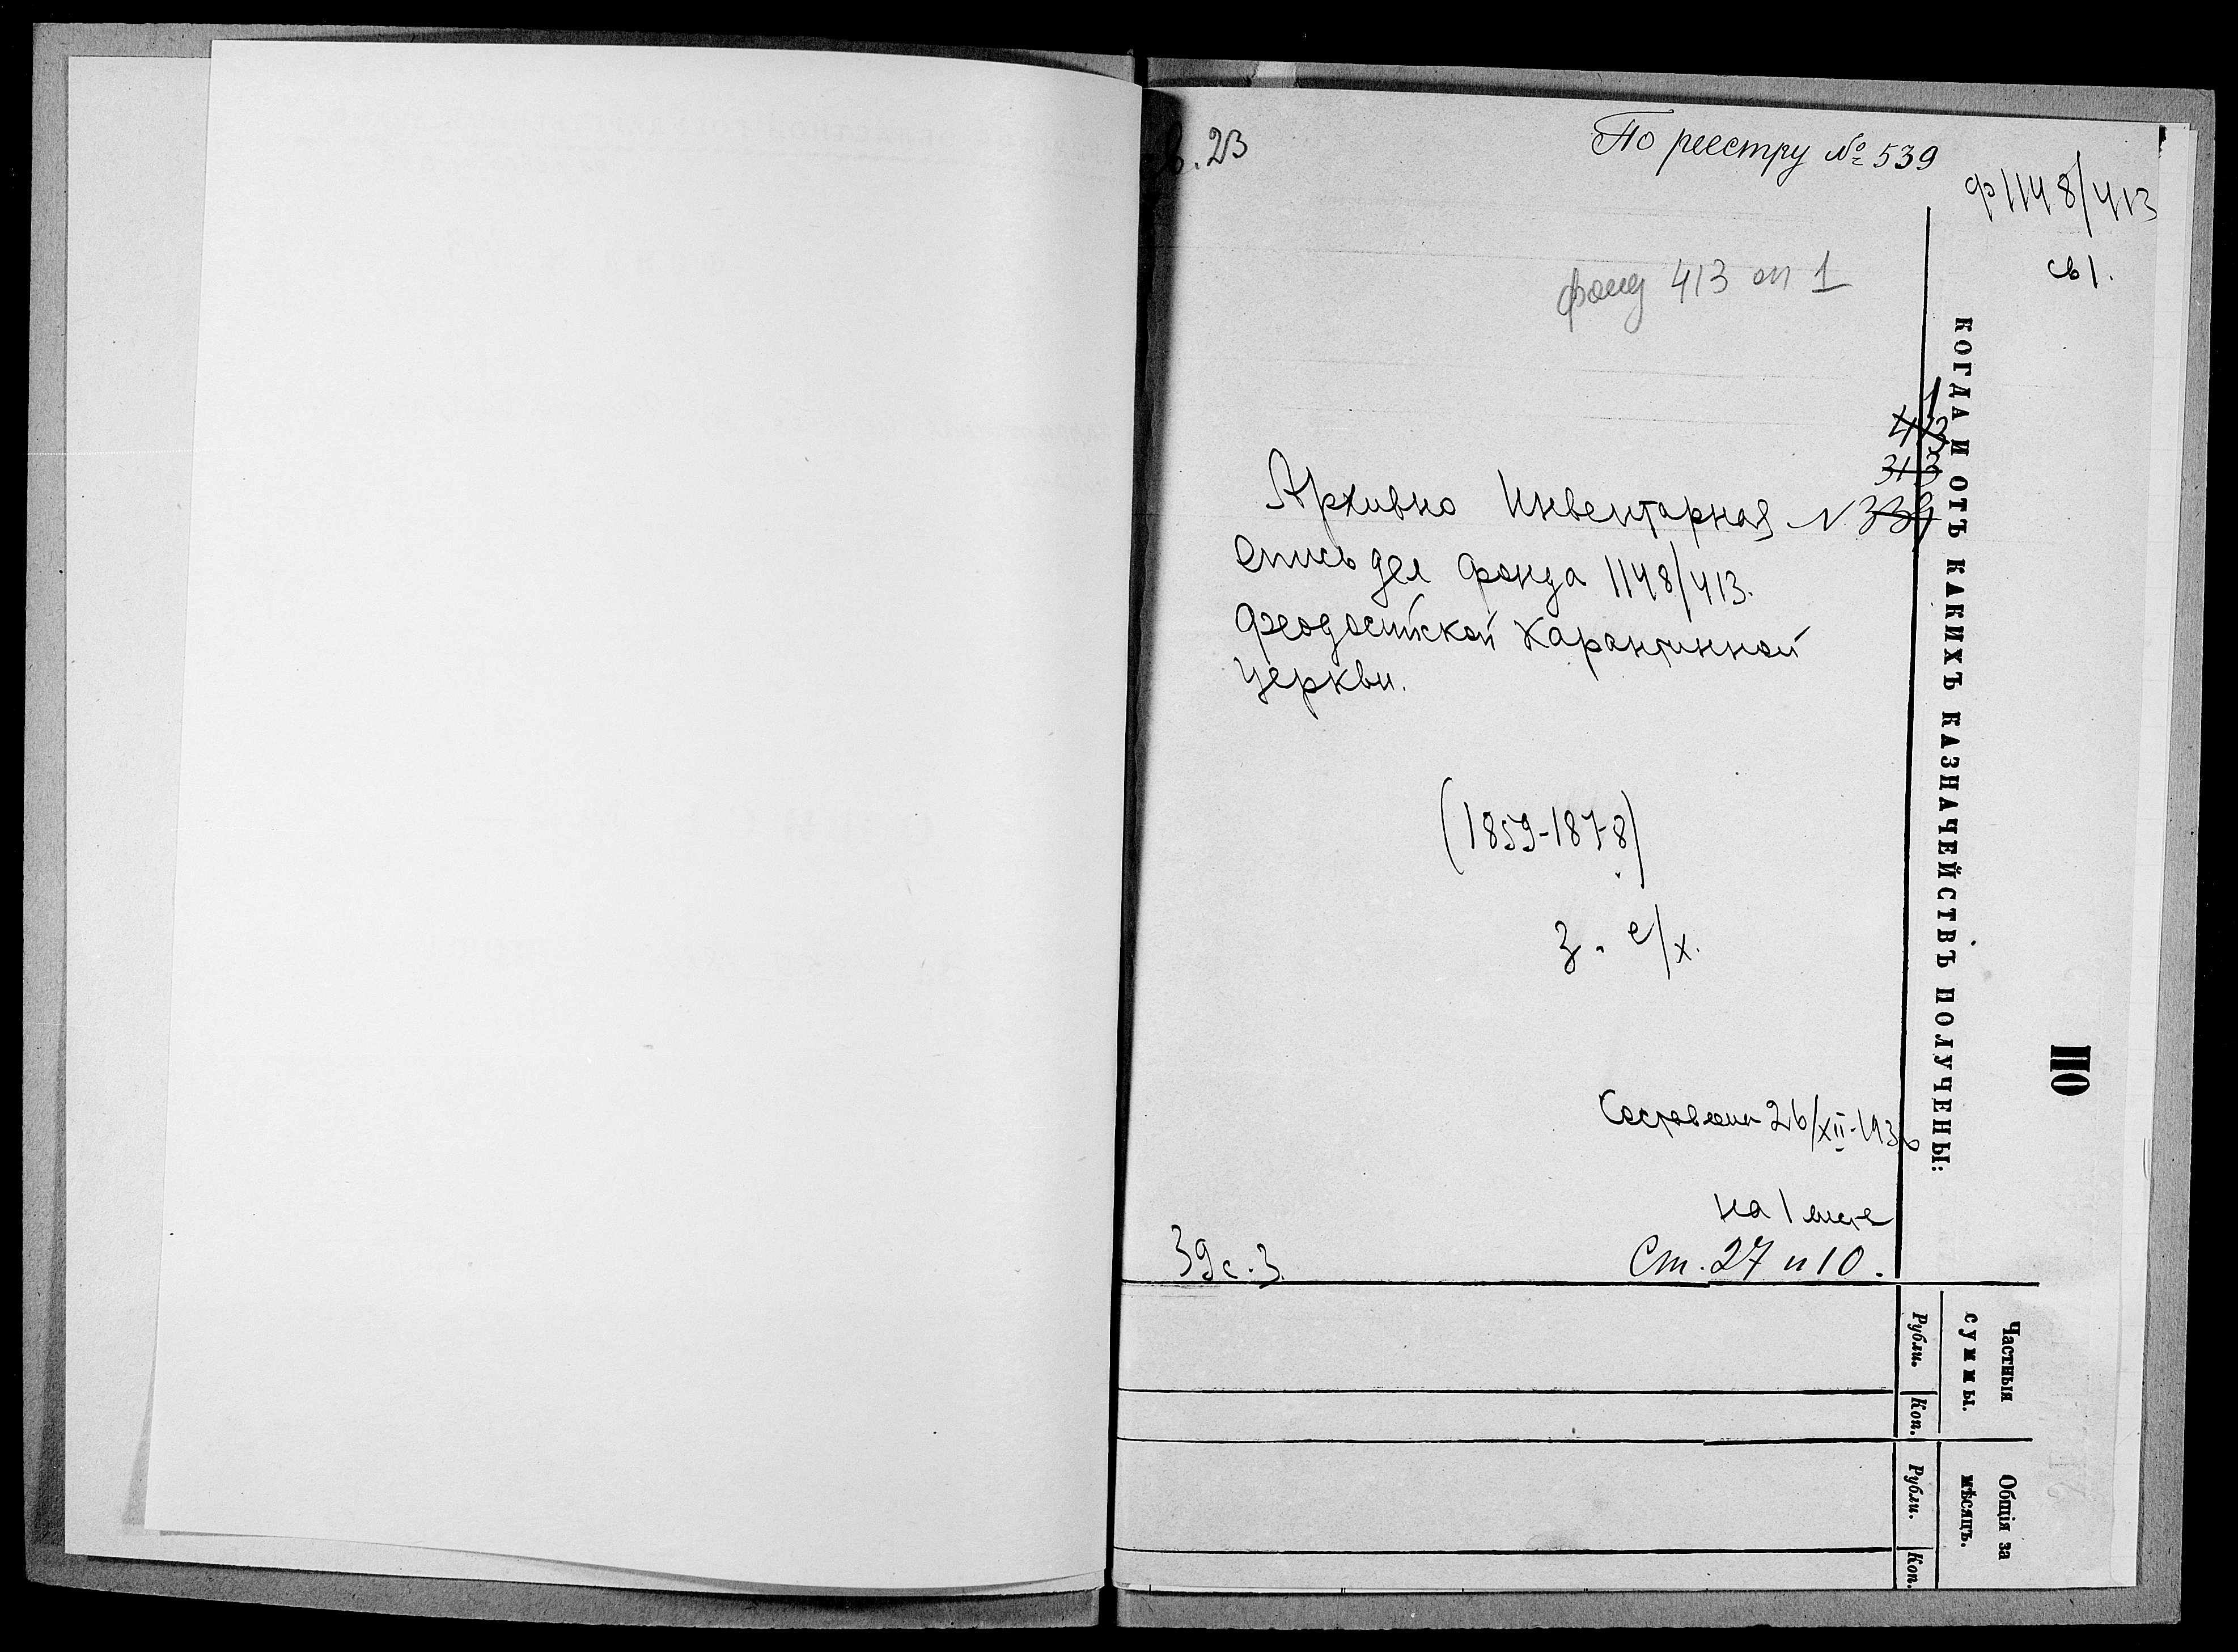 в. 23
По реестру № 539
ф 1148/413
св 1.
фонд 413 оп 1
1
413
313
Архивно Инвентарная N 339
опись дел фонда 1148/413.
Феодосийской Карантинной
церкви.
(1859-1878)
3. е/х.
Составлена 26/XII-1936
на 1 листе
39с.3.
Ст. 27 и 10.
КОГДА И ОТЪ КАКИХЪ КАЗНАЧЕЙСТВЪ ПОЛУЧЕНЫ:
ПО
Частныя
суммы.
Рубли.
Коп.
Общія за
мѣсяцъ.
Рубли.
Коп.